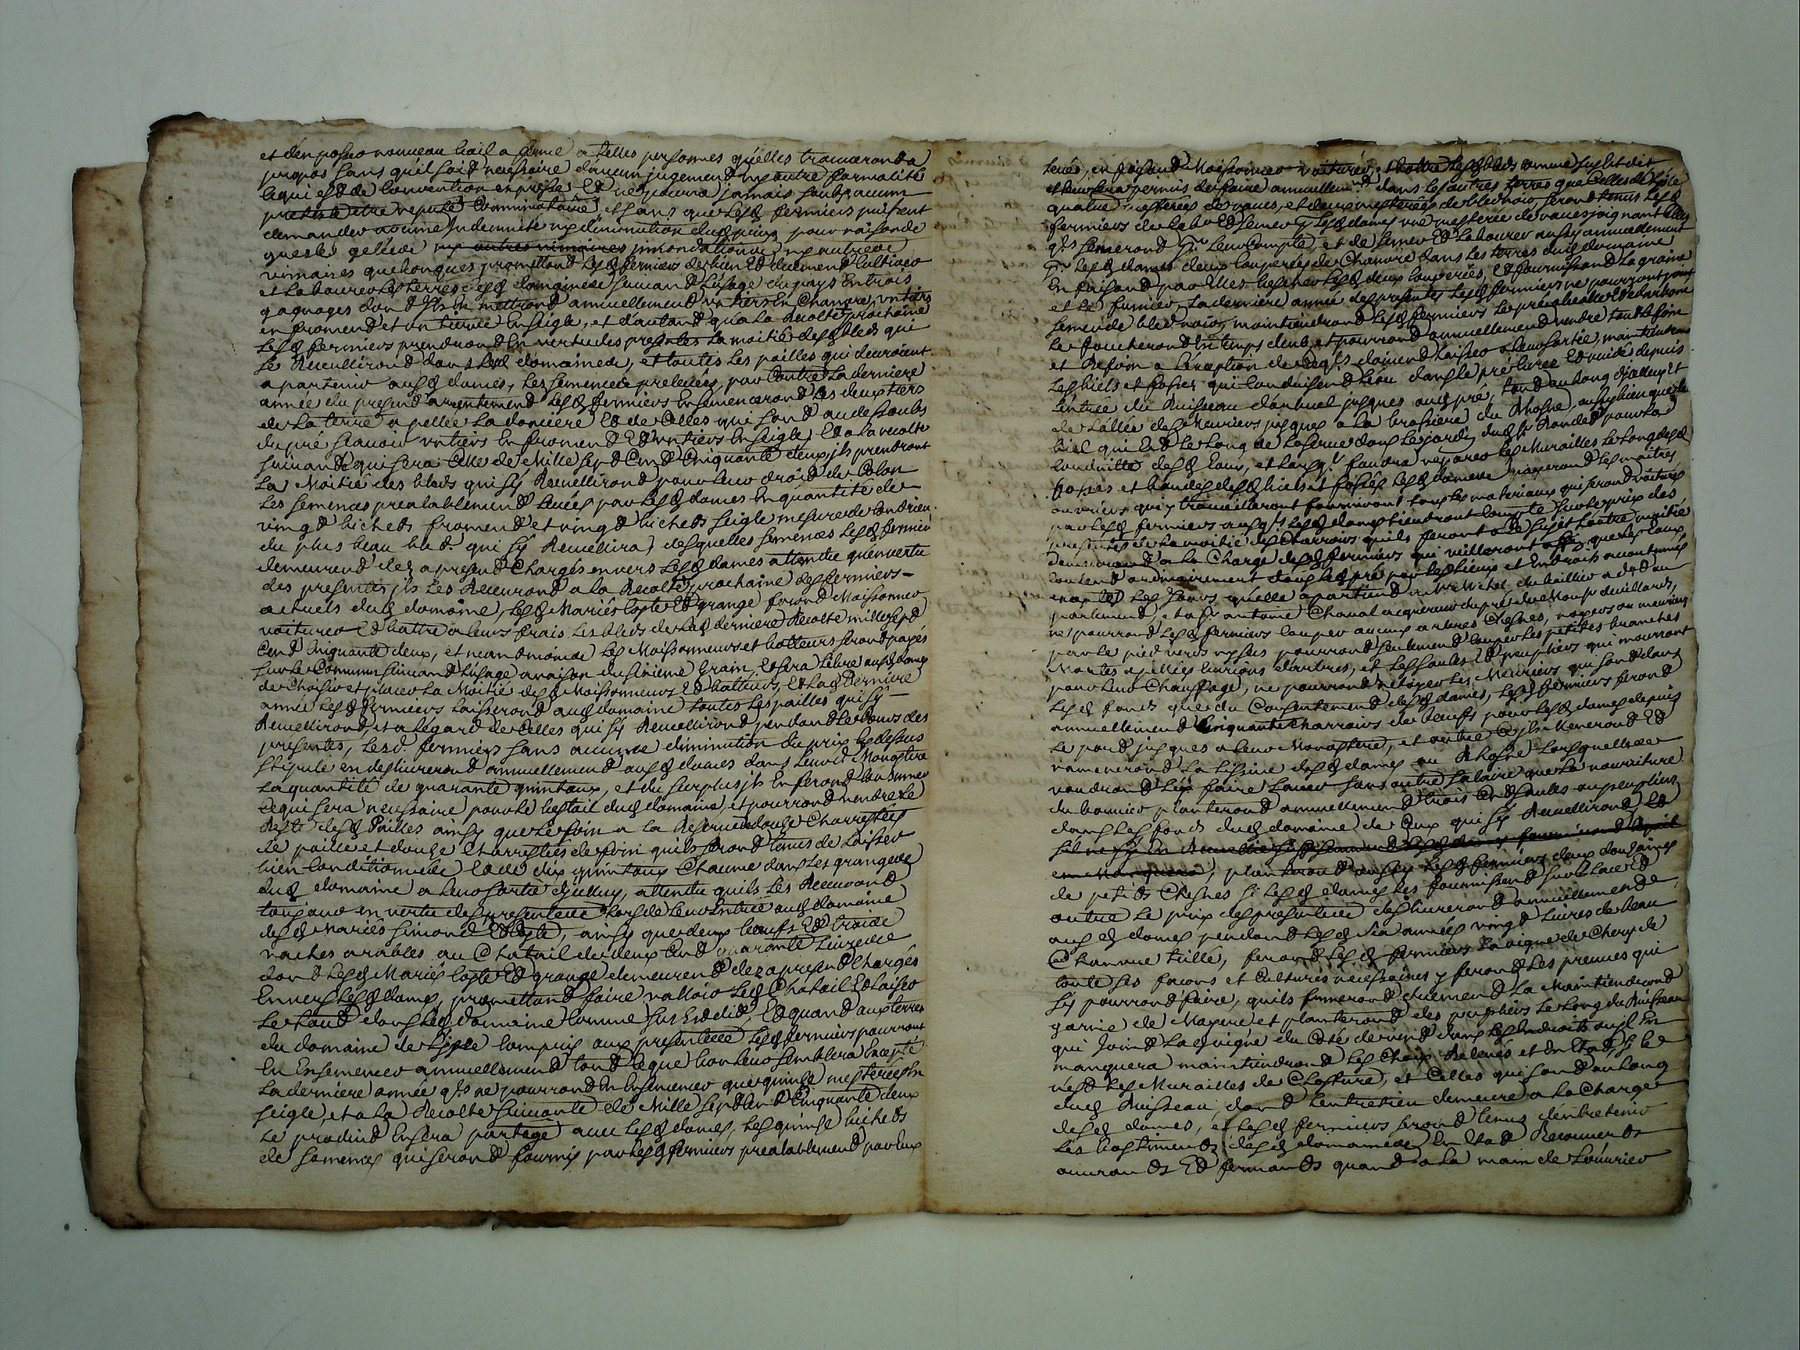 et d'en passer nouveau bail a ferme a telles personnes quelles trouveront a
propos sans qu'il soit necessaire d'aucun jugement ny autre formalité
ce qui est de convention expresse Et ne poura jamais soubs aucun
pretexte etre reputé Comminatoire, et sans que lesd fermiers puissent
demander aucune Indemnité ny diminution dud prix pour raison de
gresle gelée ny autres vimaires jnnondation ny autre
vimaires quelconques promettent lesd fermiers de bien Et duement cultiver
et Labourer les terres dud domaine suivant L'usage du pays En trois
gagnages dont Ils En mettront annuellement un tiers En Chanvre, un tiers
en froment et un tiers En seigle, et d'autant qu'a La Recolte prochaine
lesd fermiers prendront En vertu des presentes La moitié desd bleds qui
se Recueilliront dans led domaine, et toutes les pailles qui devroient
apartenir ausd dames, les semences prelevées, par Contre La derniere
année du present arrentement lesd fermiers Ensemenceront les deux tiers
de La terre apellée La et de Celles qui sont au dessoubs
du pré scavoir un tiers En froment Et un tiers En seigle, Et a la recolte
suivante qui sera Celle de Mille sept Cent Cinquante deux, jls prendront
La Moitié des bleds qui sy Recueilliront pour Leur droit de Colon
Les semences prealablement Levées par lesd dames En quantité de
vingt bichets froment et vingt bichets seigle mesure de Condrieu
du plus beau bled qui sy Recueillira, desquelles semences lesd fermiers
demeurent dez a present Chargés envers lesd dames attendu qu'en vertu
des presentes jls Les Recevront a la Recolte prochaine des fermiers
actuels dud domaine, lesd Mariés Coste Et grange feront Moissonner
voiturer Et battre a leurs frais les bleds de lad derniere Recolte mille sept
Cent Cinquante deux, et neantmoins Les Moissonneurs et batteurs seront payés
sur le Commun suivant L'usage a raison du sixieme Grain, Et sera libre ausd dames
de Choisir et placer La Moitié desd Moissonneurs Et batteurs, Et lad Derniere
année lesd fermiers laisseront aud domaine toutes les pailles qui sy
Recueilliront, et a L'égard de Celles qui sy Recueilliront pendant le Cours des
presentes, lesd. fermiers sans aucune diminution du prix cy dessus
stipulé en deslivreront annuellement ausd dames dans Leurd Monastere
La quantité de quarante quintaux, et du surplus jls En feront Consumer
ce qui sera necessaire pour le bestail dud domaine, et pourront vendre le
Reste desd Pailles ainsy que le foin a la Reserve de douze Charretées
de paille et douze Charretées de foin qu'ils seront tenus de Laisser
bien Conditionnées Et de dix quintaux Chacune dans Les granges
dud domaine a leur sortie d'jcelluy, attendu qu'ils Les Recevront
en vertu des presentes lors de leur Entrée aud domaine
desd Mariés simond Et Coste, ainsy que deux boeufs Et trois
vaches arables au Chatail de deux Cent quarante Livres
dont lesd Mariés Coste Et grange demeurent dez a present Chargés
Envers lesd dames, promettant faire valloir led Chatail Et Laisser
le tout dans led domaine Comme sus Est dit, Et quant aux terres
du domaine de Compris aux presentes lesd fermiers pourront
En Ensemencer annuellement tout ce que bon leur semblera Excepté
La derniere année qjls ne pourront En Ensemencer que quinze mesterées En
seigle, et a la Recolte suivante de Mille sept Cent Cinquante deux
Le produit En sera partagé avec lesd dames, les quinze bichets
de semences qui seront fournis par lesd fermiers prealablement par Eux
levés, en faisant Moissonner voiturer, et battre lesd bleds comme susd est dit
et leur sera permis de faire annuellement dans les autres terres que Celles de
quatre mesterées de vaves, et deux mesterées de bled noir, seront tenus lesd
fermiers de Labourer Et semer p lesd dames une mesterée de vaves joignant Celles
qjls semeront pr leur Compte, et de semer Et Labourer aussy annuellement
pr lesd dames deux Couperées de Chanvre dans les terres dud domaine
En faisant par Elles becher lesd deux Couperées, Et fournissant La graine
et le fumier, La derniere année des presentes lesd fermiers ne pourront point
semer de bled noir, maintiendront lesd fermiers les prés
Le faucheront En temps deub, et pourront annuellement vendre tout le foin
et Refoin a L'exception de Ceq jls doivent laisser a leur sortie, maintiendront
Les biefs et fossés qui Conduisent L'eau dans le pré livré Et vuidé depuis
L'entrée du Ruisseau jusques aud pré, tout au long d'jcelluy Et
de L'allée des meuriers jusques a la brassiere du Rhosne, aussy bien que le
bief qui Est le long de La serve dans le jardin dud pour La
Conduitte desd Eaux, et lorsq.l faudra reparer les Murailles le long desd
fosses et bandes desd biefs et fossés lesd dames payeront les maitres
ouvriers qui y travailleront fourniront tous les materiaux qui seront voiturés
par lesd fermiers ausq.ls lesd dames tiendront Compte sur le prix des
presentes de la moitié des Charrois qu'ils feront a Ce sujet L'autre moitié
demeurant a la Charge desd fermiers qui veilleront affin que les Eaux
Coulent ordinairement dans led pré par les lieux et Endroits accoutumés
les jours quelle apartient a Mr Michel du baillier advd en
parlement, et a sr antoine Chanal acquereur du pré de la
ne pourront lesd fermiers Couper aucuns arbres Chesnes, noyers ou meuriers
par le pied verds ny secs pourront seulement Couper les petites branches
Mortes apellées d'arbres, et les saules Et peupliers qui mourront
pour leur Chauffage, ne pourront netoyer les Meuriers qui sont dans
lesd fonds que du Consentement desd dames, lesd fermiers feront
annuellement Cinquante Charrois de boeufs pour lesd dames depuis
Le port jusques a leur Monastere, et outre Ce jls Meneront Et
rameneront La Lissive desd dames au Rhosne Lorsquelles
voudront La faire Laver sans autre salaire que La nourriture
du bouvier, planteront annuellement trois Cent saules ou peupliers
dans les fonds dud domaine de Ceux qui sy Recueilliront, Et
planteront aussy lesd fermiers deux douzaines
de petits Chesnes si lesd dames les fournissent sur la place Et
outre Le prix des presentes deslivreront annuellement
ausd dames pendant lesd six années vingt Livres de beau
Chanvre teillé, feront lesd fermiers La vigne de Chery de
toute ses façons et Cultures necessaires y feront les preuves qui
sy pourront faire, qu'ils fumeront duement La Maintiendront
garnie de Mayere et planteront des peupliers Le Long du Ruisseau
qui joint Lad vigne du Coté de vent dans les Endroits ou jl En
manquera maintiendront les Chaix Relevés et En Etat, si ce
n'est les Murailles de Closture, et Celles qui sont au long
dud Ruisseau, dont L'entretien demeure a La Charge
desd dames, et lesd fermiers seront tenus d'entretenir
Les bastiments desd domaines En Etat Recouverts
ouvrants Et fermants quant a La main de L'ouvrier